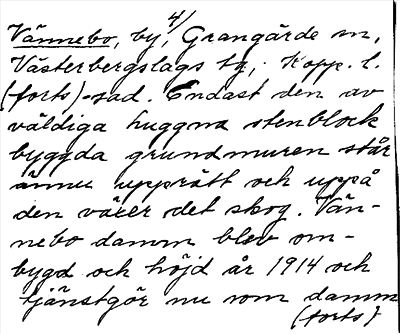 4/
Vännebo, by, Grangärde sn,
Västerbergslags tg, Kopp. l.
(forts) -sad. Endast den av
väldiga huggna stenblock
byggda grundmuren står
ännu upprätt och uppå
den växer det skog. Vän-
nebo damm blev om-
bygd och höjd år 1914 och
tjänstgör nu som damm
(forts)